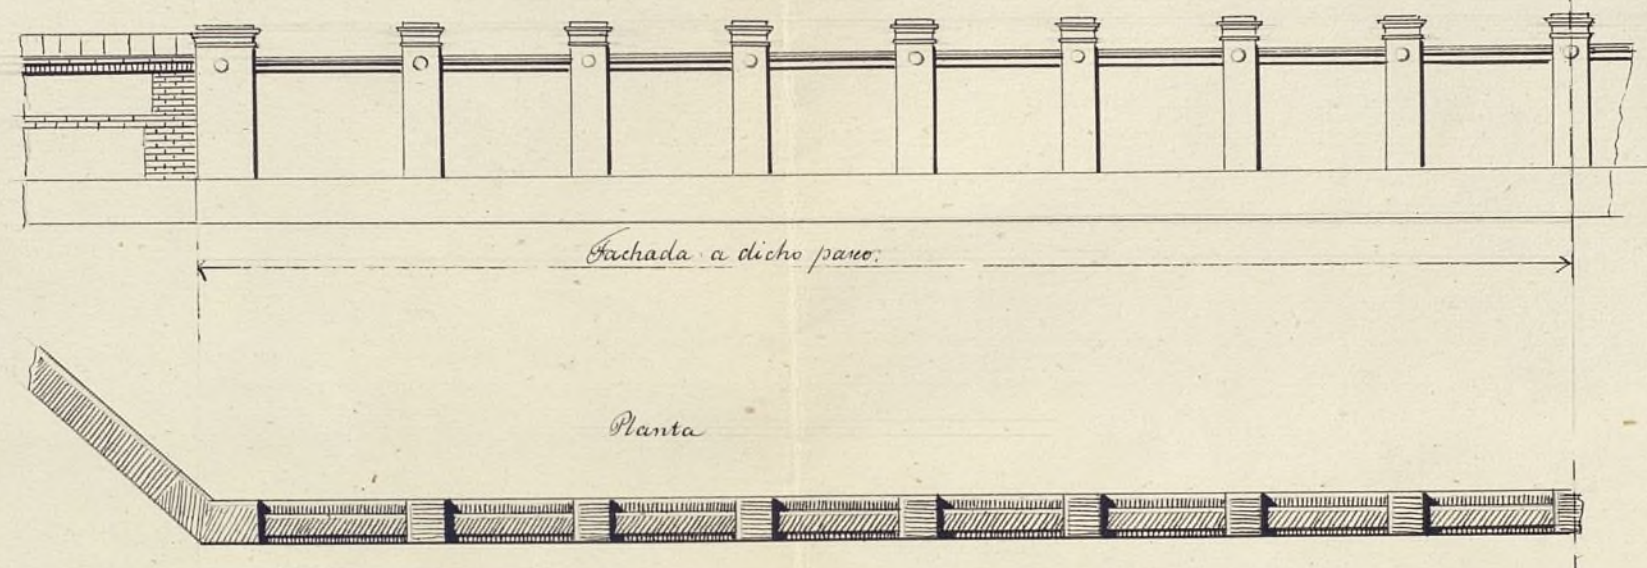 Fachada a dicho paseo.
Planta